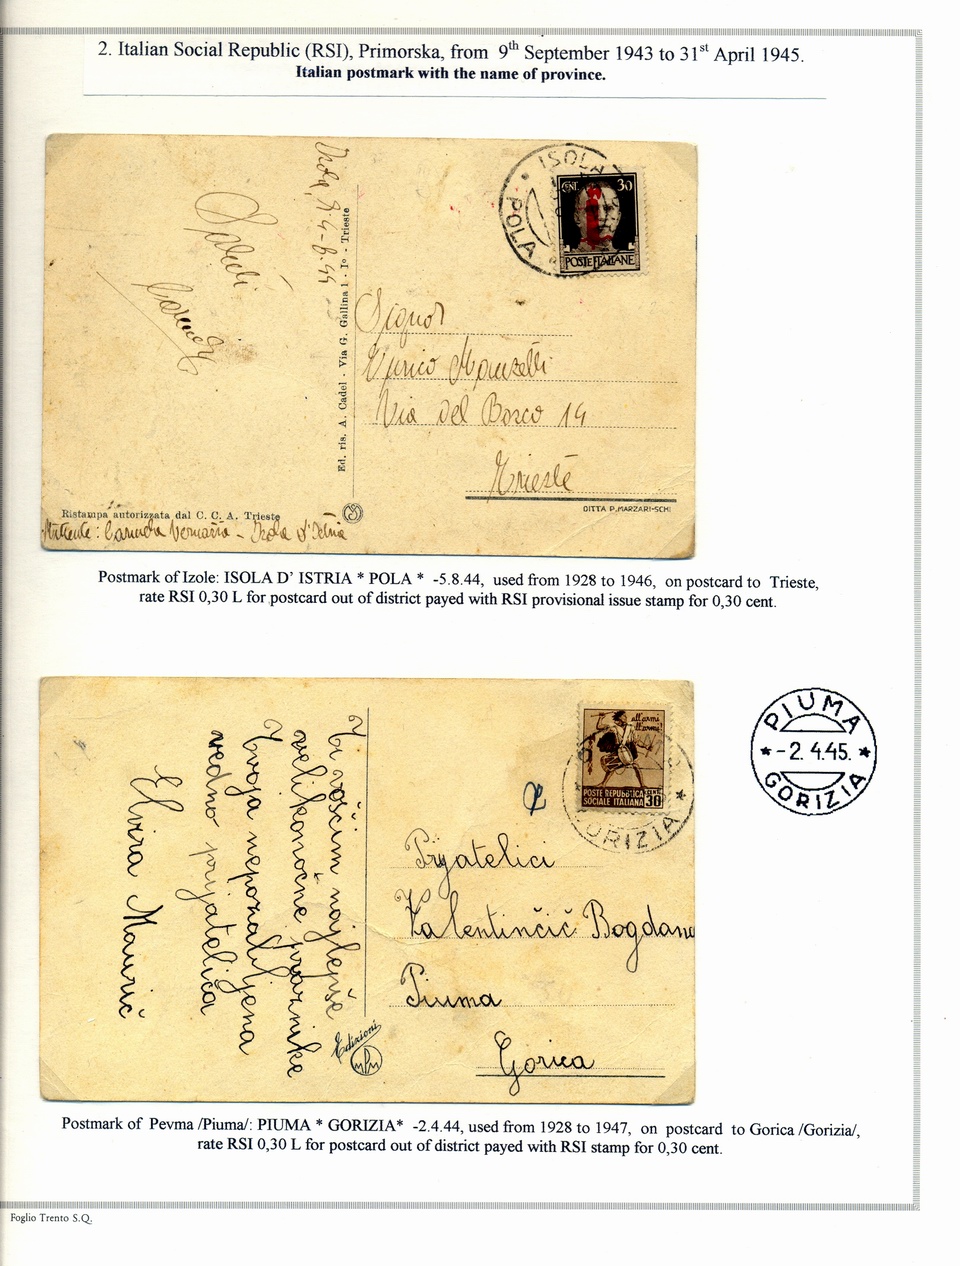 2. Italian Social Republic (RSI), Primorska, from 9th September 1943 to 31st April 1945.
Italian postmark with the name of province.
Isola, 4-8-44
Saluti
ISOLA
POLA
CENT. 30
POSTE ITALIANE
Ed. ris. A. Cadel - Via G. Gallina 1 - Iº - Trieste
Signor
Enrico
Via del Bosco 14
Trieste
Ristampa autorizzata dal C. C. A. Trieste
DITTA P. MARZARI-SCHI
Mittente: - Isola d'Istria
Postmark of Izole: ISOLA D' ISTRIA * POLA * -5.8.44, used from 1928 to 1946, on postcard to Trieste,
rate RSI 0,30 L for postcard out of district payed with RSI provisional issue stamp for 0,30 cent.
Za voščim najlepše
velikomočne praznike
Tvoja nepozabljena
vedno prijatelica
Elvira Maurič
all'armi
all'armi!
POSTE REPUBBLICA
SOCIALE ITALIANA
CENT. 30
GORIZIA
PIUMA
-2. 4.45.
GORIZIA
Prijatelici
Valentinčič Bogdana
Piuma
Gorica
Edizioni
Postmark of Pevma /Piuma/: PIUMA * GORIZIA* -2.4.44, used from 1928 to 1947, on postcard to Gorica /Gorizia/,
rate RSI 0,30 L for postcard out of district payed with RSI stamp for 0,30 cent.
Foglio Trento S.Q.